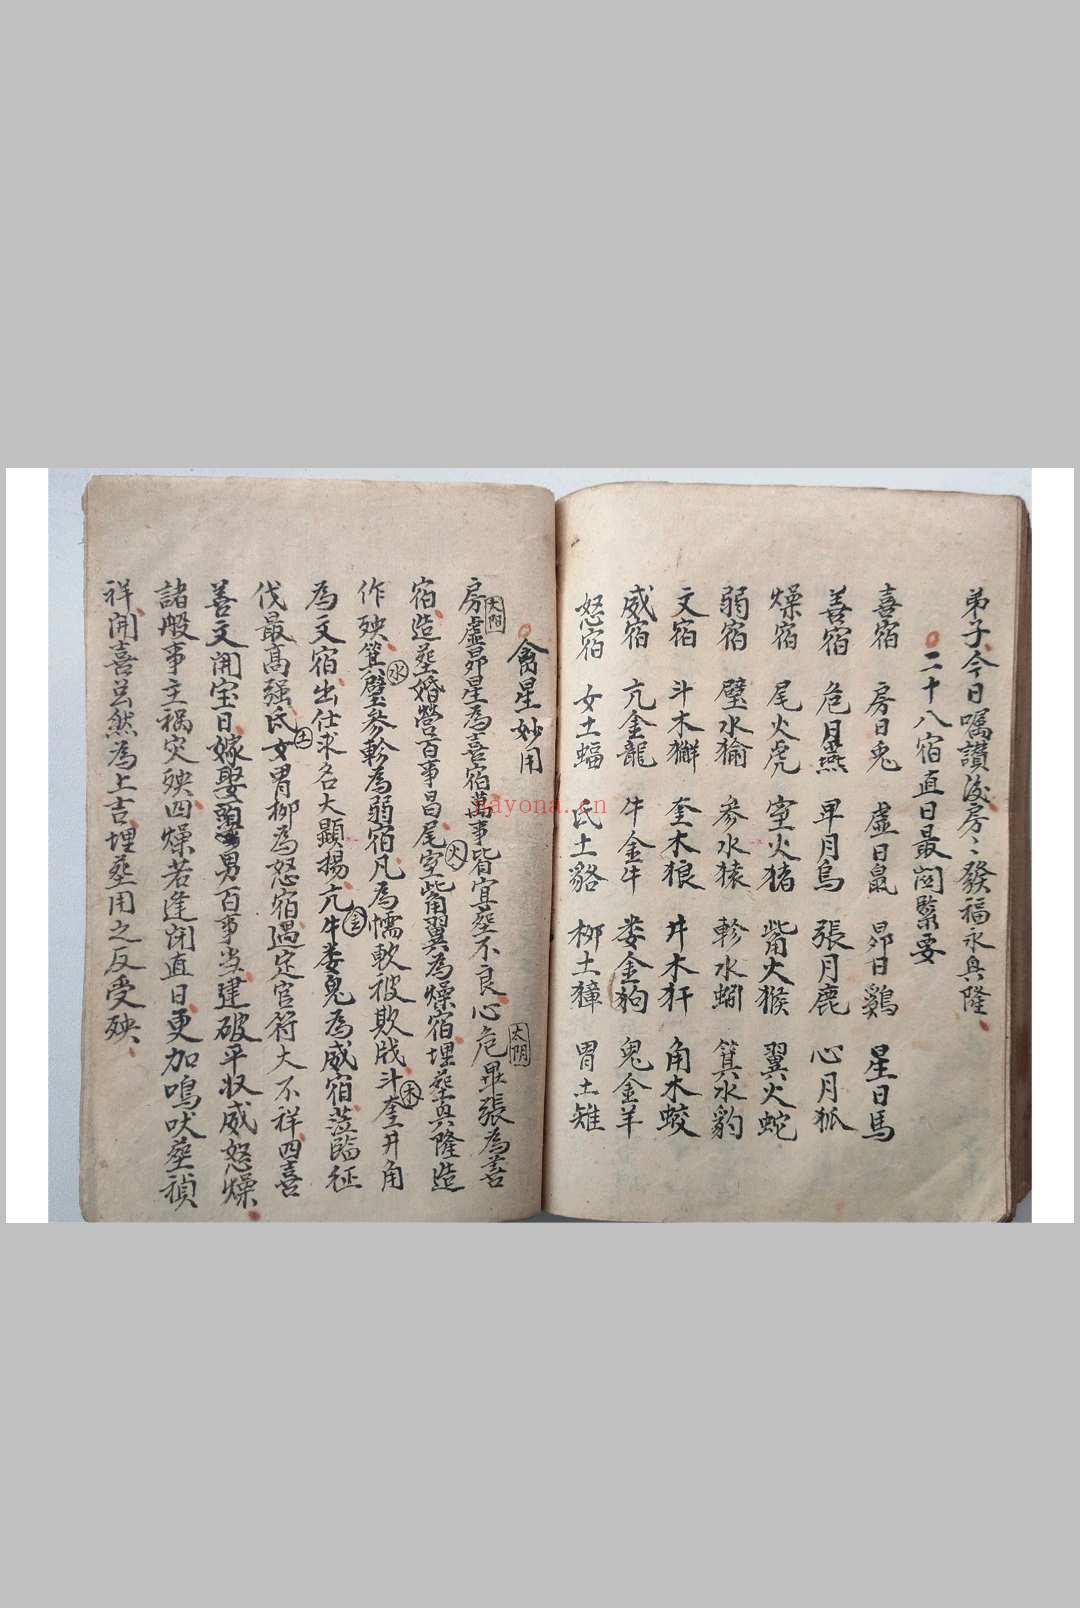 弟子今日嘱讚後房〻發福永興隆
二十八宿直日最関緊要
喜宿 房日兎 虛日鼠 昴日鷄 星日馬
善宿 危月燕 畢月烏 張月鹿 心月狐
燥宿 尾火虎 室火猪 觜火猴 翼火蛇
弱宿 璧水㺄 參水猿 軫水蚓 箕水豹
文宿 斗木獬 奎木狼 井木犴 角木蛟
威宿 亢金龍 牛金牛 娄金狗 鬼金羊
怒宿 女土蝠 氐土貉 柳土獐 胃土雉
禽星妙用
房虛昴星為喜宿萬事皆宜塟不良心危畢張為善
太陽
太阴
宿造塟婚營百事昌尾室觜翼為燥宿埋塟興隆造
火
作殃箕璧參軫為弱宿凡為懦軟被欺戕斗奎井角
水
木
為文宿出仕求名大顯揚亢牛娄鬼為威宿涖臨征
金
伐最髙强氐女胃柳為怒宿遇定官符大不祥四喜
土
善文開宝日嫁娶男百事当建破平収威怒燥
諸般事主禍灾殃四燥若逢闭直日更加鳴吠塟禎
祥開喜忌然為上吉埋塟用之反受殃
nayona.cn